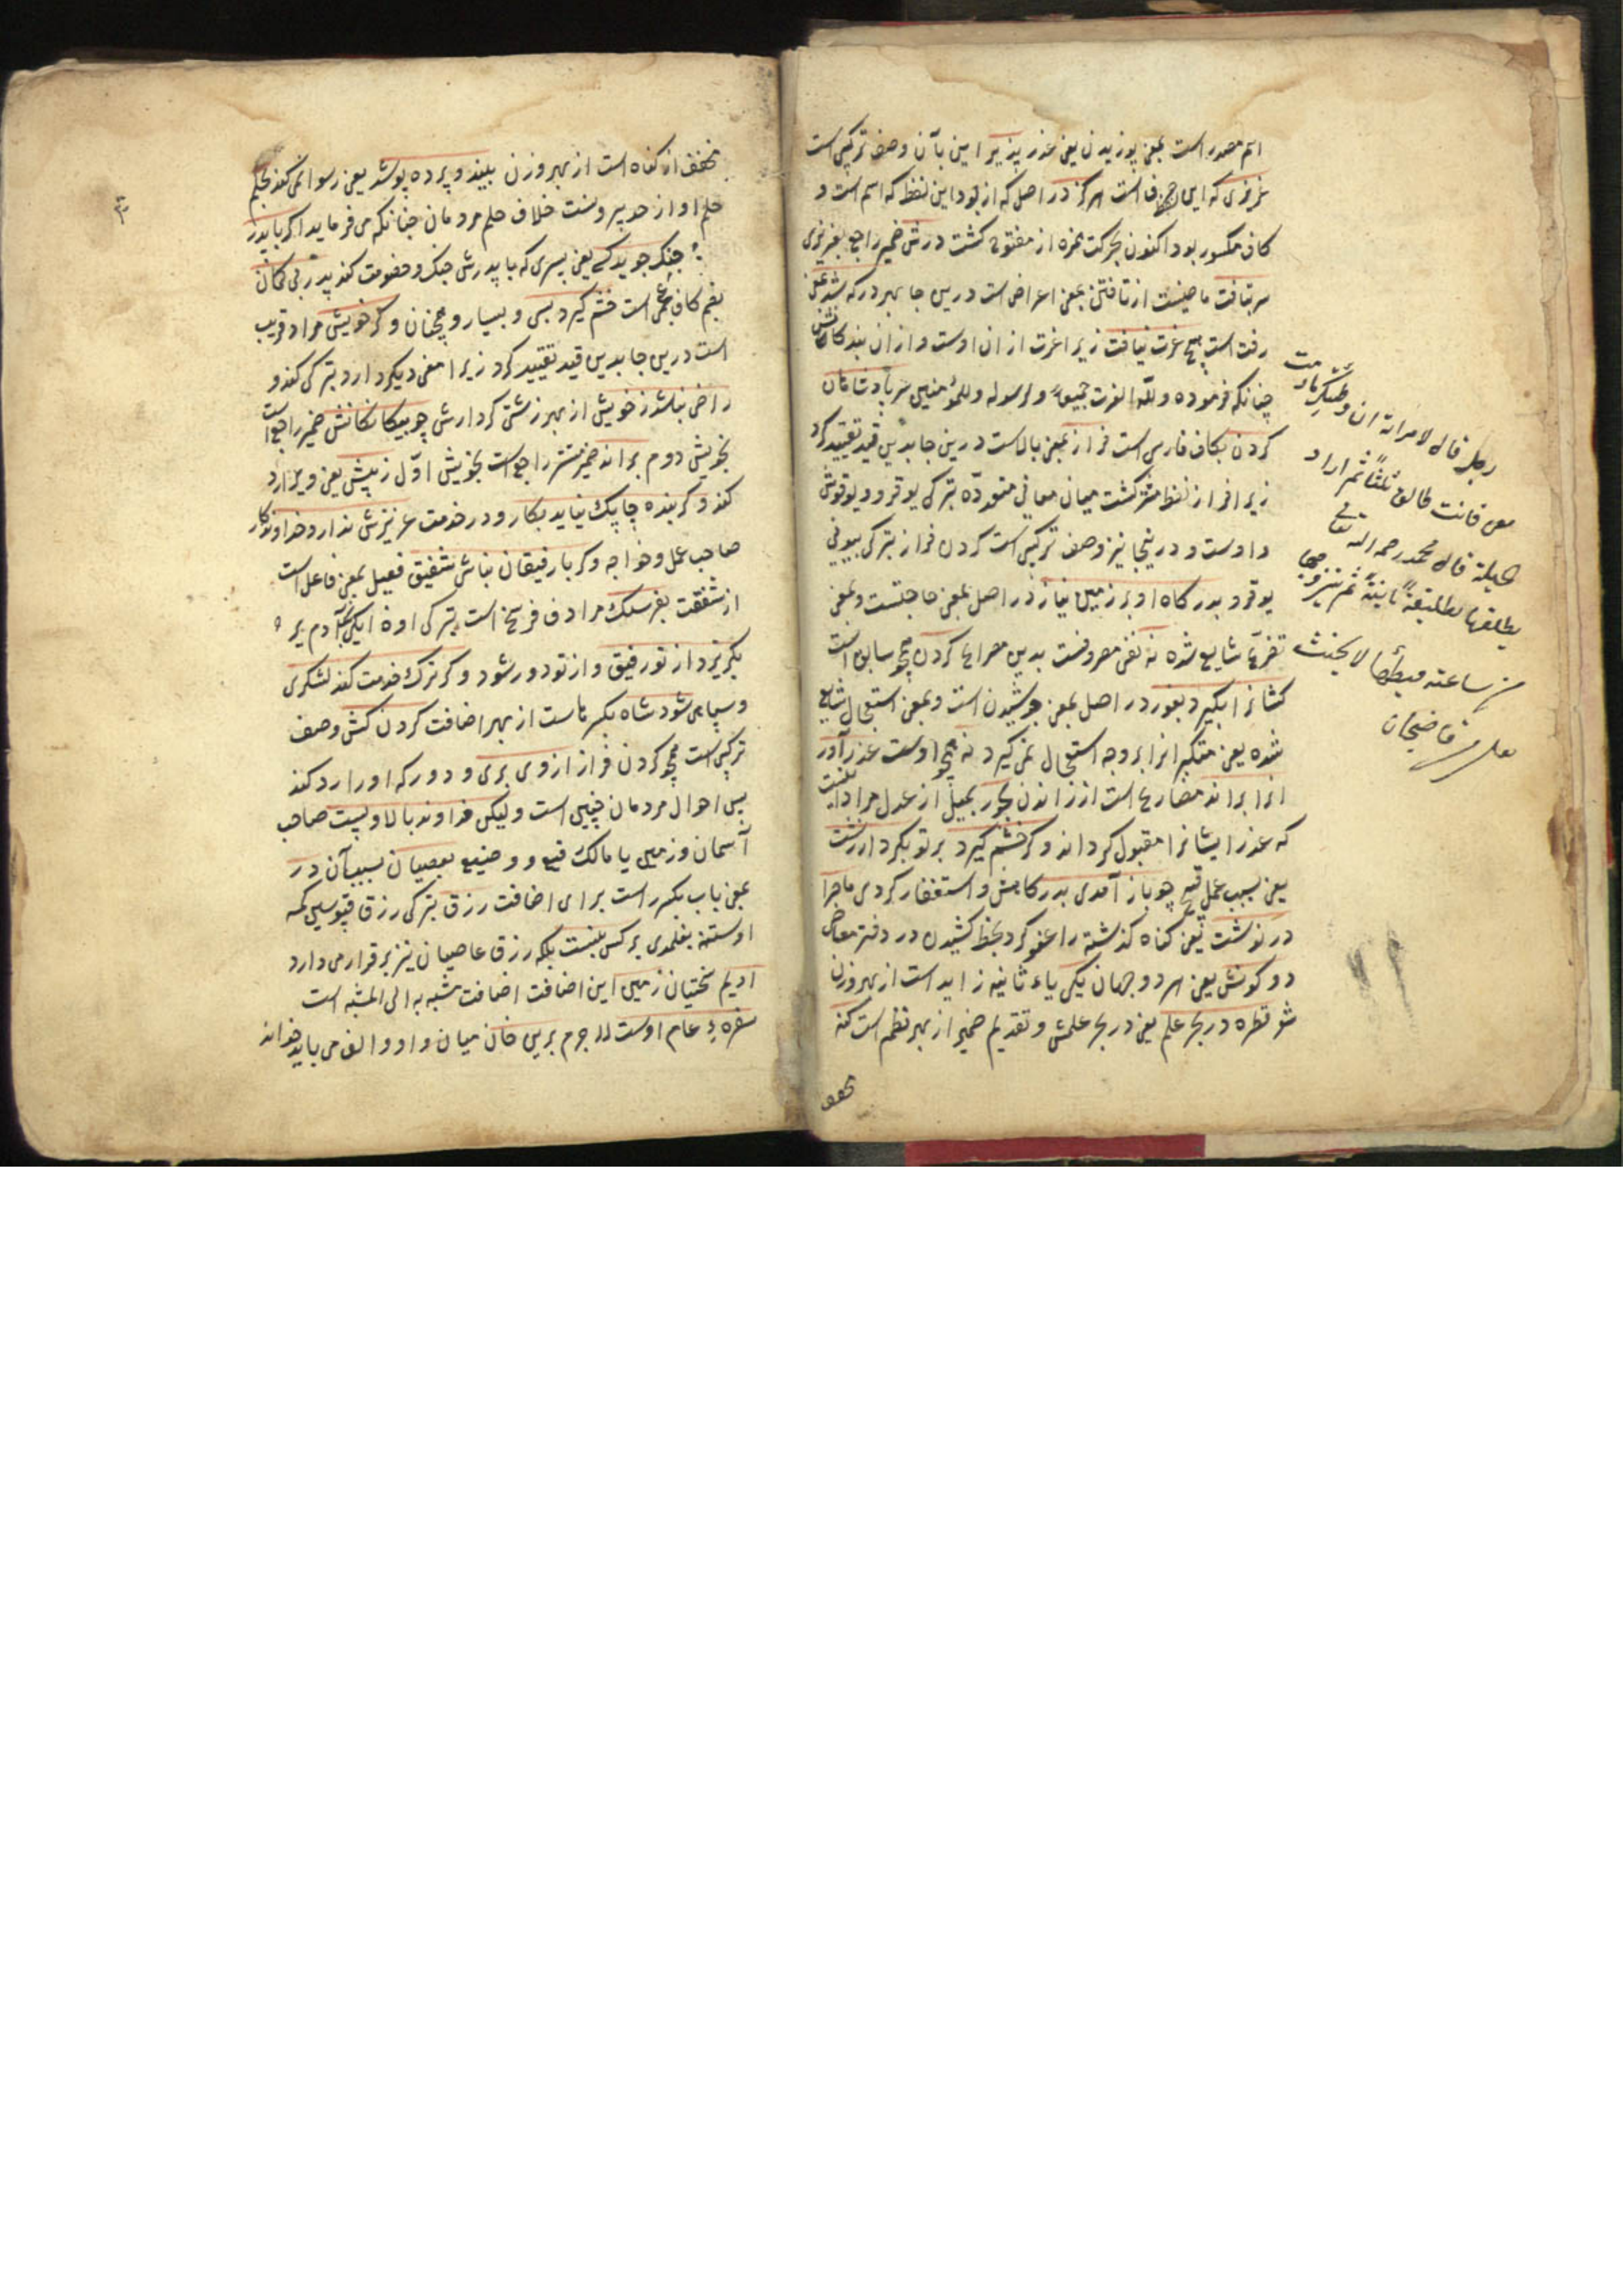 اسم مصدر است بمعنی پوزیدن یعنی عذر پذیر امین بآن وصف ترکیبی است
عزیزی که این هم فا است هرکز در اصل که از بود این لفظ که اسم است و
کاف مکسور بود اکنون بحرکت همزه از مفتوح کشت درش ضمیر راجع بعزیزی
سر بتافت ماضیست از تافتن بمعنی اعراض است درین جا بهر در که شد یعنی
رفت است هیچ عزت نیافت زیرا عزت از ان اوست و از ان بندکان
چنانکه فرموده وللّه العزت جمیعا ولرسوله وللمؤمنین سر پادشاهان
کردن بکاف فارسی است فراز بمعنی بالاست درین جا بدین قید تقیید کرد
زیرا فراز لفظ مشترکست میان معانی متعدّده بترکی یوقرو ویوقوش
داوست و درینجا نیز وصف ترکیبی است کردن فراز بترکی بیونی
یوقرو بدرکاه او بر زمین نیاز در اصل بمعنی حاجتست و بمعنی
تضرّع شایع شده نه نفی معروفست بدین مصراع کردن همچو سابق است
کشانرا بکیرد بفور در اصل بمعنی جوشیدن است و بمعنی استعجال شایع
شده یعنی متکبرانرا بر وجه استعجال نمی کیرد نه همچو اوست عذر آور
انرا براند مضارع است از راندن بجور بمیل از عدل مراد اینست
که عذر ایشانرا مقبول کرداند و کر خشم کیرد بر تو بکردار زشت
یعنی بسبب عمل قبیح چو باز آمدی بدرکاهش و استغفار کردی ماجرا
در نوشت یعنی کناه کذشته را عفو کرد بخط کشیدن در دفتر معاصی
دو کونش یعنی هر دو جهان یکی یاء ثانیه زاید است از بهر وزن
شو قطره در بحر علم یعنی در بحر علمش و تقدیم ضمیر از بهر نظم است کنه
مخفف
رجل قال لامراته ان وطئتک مادمت
معی فانت طالق ثلثا ثم اراد
الحیلة قال محمد رحمه الله تعالی
یطلقها تطلیقة بائنة ثم یتزوجها
من ساعته فیطأها لا یحنث
قاضیخان
مخفف از کناه است از بهر وزن بیند و پرده پوشد یعنی رسوا نمی کند بحلم
حلم او از حد بیرونست خلاف حلم مردمان چنانکه می فرماید اکر با پدر
جنک جوید کسی یعنی پسری که با پدرش جنک و خصومت کند پدر بی کمان
بضم کاف عجمی است خشم کیرد بسی و بسیار و همچنان و کر خویش مراد قریب
است درین جا بدین قید تقیید کرد زیرا معنی دیکر دارد بترکی کندو
راضی نباشد ز خویش از بهر زشتی کردارش چو بیکانکانش ضمیر راجع است
بخویش دوم براند ضمیر مستتر راجع است بخویش اوّل ز پیش یعنی
کند و کر بنده چاپک نیاید بکار و در خدمت عزیزش ندارد خداوندکار
صاحب عمل و خواجه و کر با رفیقان نباشی شفیق فعیل بمعنی فاعل است
از شفقت بفرسنک مرادف فرسخ است بترکی
بکریزد از تو رفیق و از تو دور شود و کر ترک خدمت کند لشکری
و سپاهی شود شاه بکسر هاست از بهر اضافت کردن کش وصف
ترکیبی است همچو کردن فراز از وی بری و دور که او را رد کند
پس احوال مردمان چنین است ولیکن خداوند بالا و پست صاحب
آسمان و زمین یا مالک بعصیان بسبب آن در
بمعنی باب بکسر راست برای اضافت رزق بترکی رزق قپوسین کمسه
اوستنه بغلمدی بر کس نبست بلکه رزق عاصیان نیز بر قرار می دارد
ادیم سختیان زمین این اضافت اضافت مشبه به الی المشبه است
سفرهء عام اوست لا جرم برین خان میان واو و الف می باید خواند